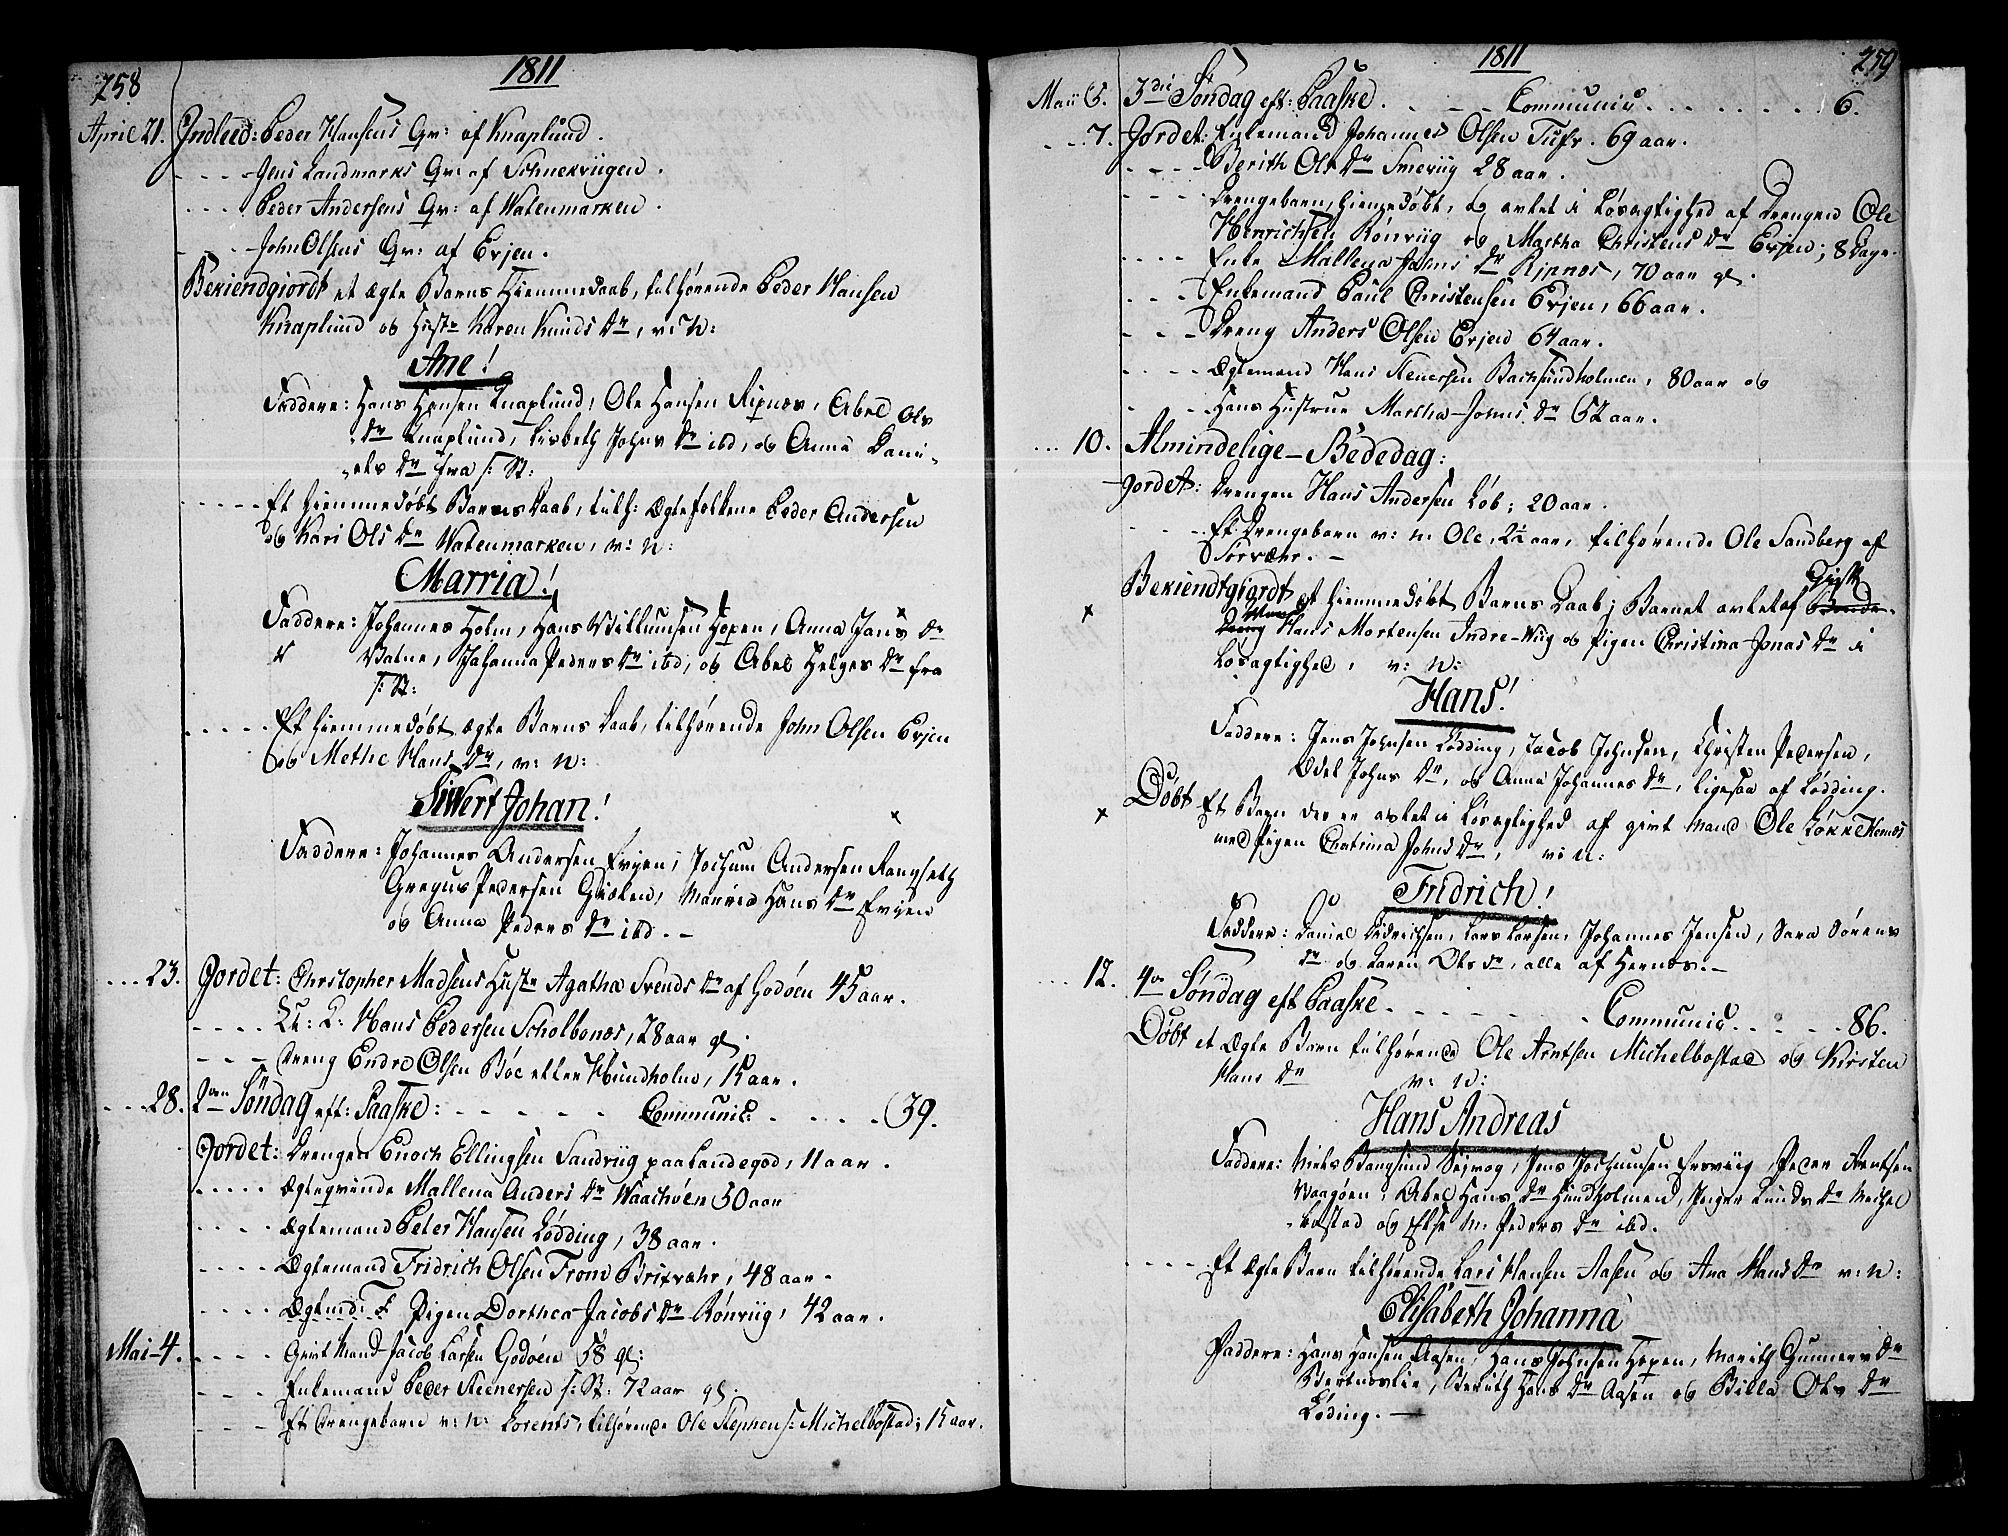 258
1811
April 21. Indleed: Peder Hansens Qv: af Knaplund.
Jens Landmarks Qv: af Schnekviigen.
Peder Andersens Qv: af Vatenmarken.
John Olsens Qv: af Evjen.
Bekiendgiordt et Ægte Barns Hiemmedaab, tilhørende Peder Hansen
Knaplund og Hustr Karen Knuds Dr, v: N:
Ane!
Faddere: Hans Hansen Knaplund, Ole Hansen Ripnæs, Abel Ols
Dr Knaplund, Lisbeth Johns Dr ibd, og Anna Dani-
els Dr fra s: St:
Et hiemmedøbt Barns Daab, tilh: Ægtefolkene Peder Andersen
og Kari Ols Dr Vatenmarken, v: N:
Marria!
Faddere: Johannes Holm, Hans Villumsen Hopen, Anna Jans Dr
Valne, Johanna Peders Dr ibd, og Abel Helges Dr fra
s: St:
Et hiemmedøbt Ægte Barns Daab, tilhørende John Olsen Evjen
og Methe Hans Dr, v: N:
Sivert Johan!
Faddere: Johannes Andersen Evjen, Jochum Andersen
Gregus Pedersen Hans Dr Evjen
og Anna Peders Dr ibd. -
23. Jordet: Christopher Madsens Hustr Agatha Svends Dr af Godøen 45 aar.
Hans Pedersen Scholbonæs, 28 aar gl.
Dreng Endre Olsen Bøe eller Hundholm, 15 aar.
28. 2den Søndag eft: Paaske: Communic: 39.
Jordet: Drengen Enoch Ellingsen Sandviig paa Landegod, 11 aar.
Ægteqvinde Mallena Anders Dr Waagøen 50 aar
Ægtemand Peter Hansen Lødding, 38 aar.
Ægtemand Fridrich Olsen From Brixvæhr, 48 aar.
Pigen Dorthea Jacobs Dr Rønviig, 42 aar.
Mai 4. Givt Mand Jacob Larsen Godøen 58 gl:
Enkemand Peder Steenersen s: St: 72 aar gl.
Et Drengebarn v: N: Lorents, tilhørende Ole Stephens: Michelbostad; 15 aar.
1811
259
Maii 5. 3die Søndag eft: Paaske. Communic 6.
7. Jordet: Enkemand Johannes Olsen 69 aar.
Berith Ols Dr Smeviig 28 aar.
Drengebarn, hiemmedøbt, og avlet i Løsagtighed af Drengen Ole
Henrichsen Rønviig og Martha Christens Dr Evjen; 8 Dage.
Enke Mallena Johns Dr Ripnæs, 70 aar gl.
Enkemand Paul Christensen Evjen, 66 aar.
Dreng Anders Olsen Evjen 64 aar.
Ægtemand Hans Stenersen Bachsundholmen, 80 aar og
Hans Hustrue Martha Johns Dr 62 aar.
10. Almindelige-Bededag:
Jordet: Drengen Hans Andersen Løb; 20 aar.
Et Drengebarn v: N: Ole, 2½ aar, tilhørende Ole Sandberg af
Sørvæhr. -
Bekiendtgiordt et hiemmedøbt Barns Daab; Barnet avlet af Gift
Mand Hans Mortensen Indre-Wiig og Pigen Christina Jonas Dr i
Løsagtighed, v: N:
Hans!
Faddere: Jens Johnsen Lødding, Jacob Johnsen, Christen Pedersen,
Edel Johns Dr, og Anna Johannes Dr, ligesaa af Lødding.
Døbt Et Barn der er avlet i Løsagtighed af givt Mand Ole Løkke Hernæs
med Pigen Chatrina Johns Dr, v: N:
Fridrich!
Faddere: Daniel Didrichsen, Lars Larsen, Johannes Jensen, Sara Sørens
Dr og Karen Ols Dr, alle af Hernæs. -
12. 4de Søndag eft Paaske. Communic 86.
Døbt et Ægte Barn tilhørende Ole Arntsen Michelbostad og Kirsten
Hans Dr v: N:
Hans Andreas
Faddere: Niels Bangsund Jens Jochumsen Peder Arntsen
Waagøen, Abel Hans Dr Hundholmen, Inger Knuds Dr Michel
bostad og Else M: Peders Dr ibd.
Et Ægte Barn tilhørende Lars Hansen Aasen og Ana Hans Dr v: N:
Elisabeth Johanna
Faddere: Hans Hansen Aasen, Hans Johnsen Hopen, Marith Gunners Dr
Hans Dr Aasen og Billa Ols Dr
Løding. -